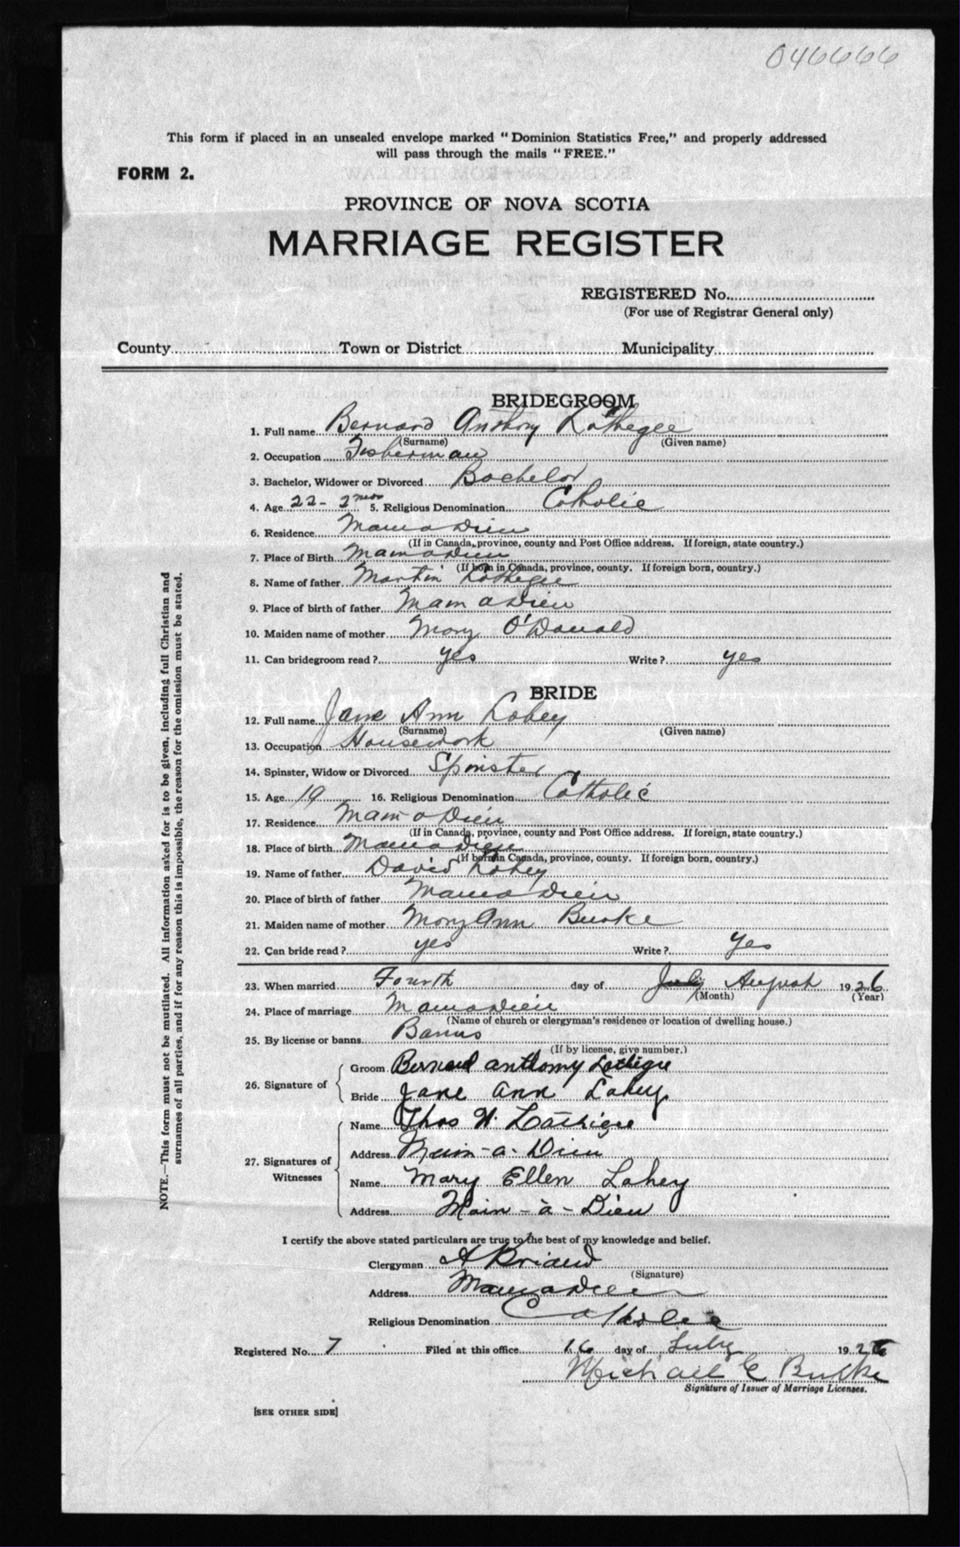 046666
This form if placed in an unsealed envelope marked "Dominion Statistics Free," and properly addressed
will pass through the mails "FREE."
FORM 2.
PROVINCE OF NOVA SCOTIA
MARRIAGE REGISTER
REGISTERED No.
(For use of Registrar General only)
County Town or District Municipality
BRIDEGROOM
1. Full name Bernard Anthony Lathegee
(Surname) (Given name)
2. Occupation Fisherman
3. Bachelor, Widower or Divorced Bachelor
4. Age 22 - 2 mos 5. Religious Denomination Catholic
6. Residence Mainadieu
(If in Canada, province, county and Post Office address. If foreign, state country.)
7. Place of Birth Mainadieu
(If born in Canada, province, county. If foreign born, country.)
8. Name of father Martin Lathegee
9. Place of birth of father Mam a Dieu
10. Maiden name of mother Mary O'Donald
11. Can bridegroom read? yes Write? yes
BRIDE
12. Full name Jane Ann Lahey
(Surname) (Given name)
13. Occupation Housework
14. Spinster, Widow or Divorced Spinster
15. Age 19 16. Religious Denomination Catholic
17. Residence Main a Dieu
(If in Canada, province, county and Post Office address. If foreign, state country.)
18. Place of birth Mainadieu
(If born in Canada, province, county. If foreign born, country.)
19. Name of father David Lahey
20. Place of birth of father Maina Dieu
21. Maiden name of mother Mary Ann Burke
22. Can bride read? yes Write? Yes
23. When married Fourth day of July August 1926
(Month) (Year)
24. Place of marriage Mainadieu
(Name of church or clergyman's residence or location of dwelling house.)
25. By license or banns Banns
(If by license, give number.)
26. Signature of
Groom Bernard anthony Lathigee
Bride Jane Ann Lahey
27. Signatures of Witnesses
Name Thos W. Lathigee
Address Main-a-Dieu
Name Mary Ellen Lahey
Address Main-à-Dieu
I certify the above stated particulars are true to the best of my knowledge and belief.
Clergyman A Briand
(Signature)
Address Mainadieu
Religious Denomination Catholic
Registered No. 7 Filed at this office 16 day of July 1926
Michael C Burke
Signature of Issuer of Marriage Licenses.
[SEE OTHER SIDE]
NOTE.—This form must not be mutilated. All information asked for is to be given, including full Christian and
surnames of all parties, and if for any reason this is impossible, the reason for the omission must be stated.